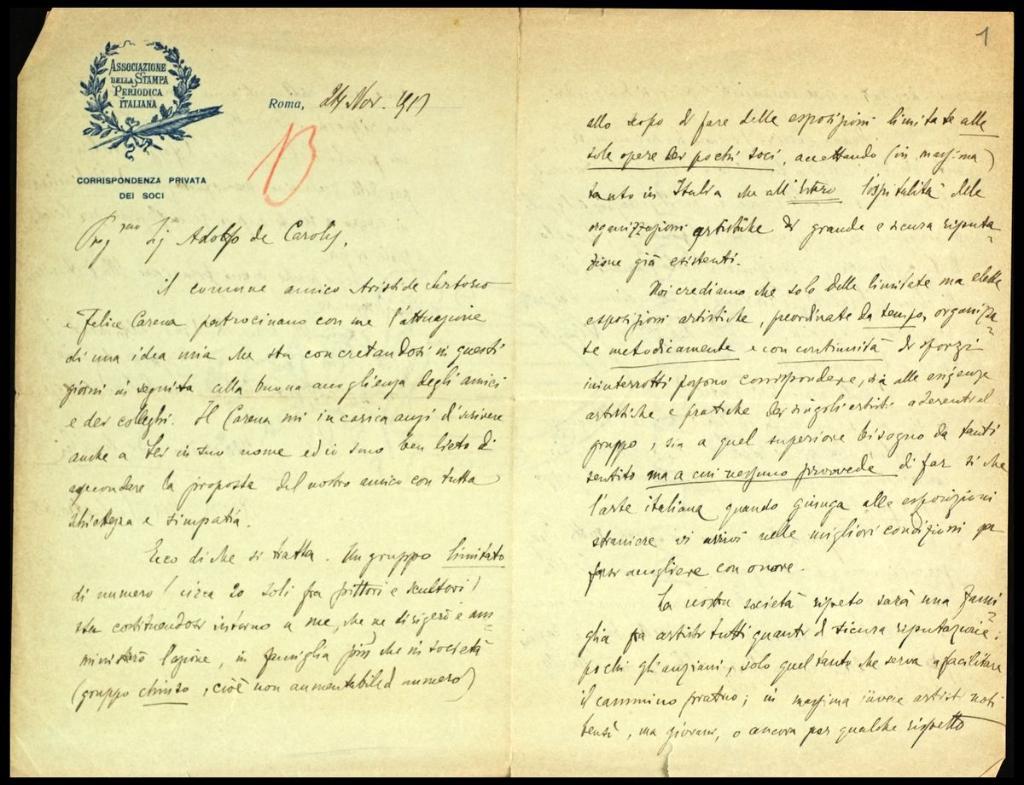 ASSOCIAZIONE
DELLA STAMPA
PERIODICA
ITALIANA
CORRISPONDENZA PRIVATA
DEI SOCI
Roma, 24 Nov. 191
13
Sig Adolfo de Carolis,
il comune amico Aristide Sartorio
e Felice Carena patrocinano con me l'attuazione
di una idea mia che sta concretandosi in questi
giorni in seguito alla buona accoglienza degli amici
e dei colleghi. Il Carena mi incarica anzi di scrivere
anche a Lei in suo nome ed io sono ben lieto di
secondare la proposta del nostro amico con tutta
schiettezza e simpatia.
Ecco di che si tratta. Un gruppo limitato
di numero (circa 20 soli fra pittori e scultori)
sta costituendosi intorno a me, che ne dirigerò e am=
ministrerò l'azione, in famiglia più che in società
(gruppo chiuso, cioè non aumentabile di numero)
1
allo scopo di fare delle esposizioni limitate alle
sole opere dei pochi soci, accettando (in massima)
tanto in Italia che all'estero l'ospitalità delle
organizzazioni artistiche di grande e sicura reputa=
zione già esistenti.
Noi crediamo che solo delle limitate ma elette
esposizioni artistiche, preordinate da tempo, organizza=
te metodicamente e con continuità di sforzi
ininterrotti possono corrispondere, sia alle esigenze
artistiche e pratiche dei singoli artisti aderenti al
gruppo, sia a quel superiore bisogno da tanti
sentito ma a cui nessuno provvede di far sì che
l'arte italiana quando giunga alle esposizioni
straniere vi arrivi nelle migliori condizioni per
farsi accogliere con onore.
La nostra società ripeto sarà una fami=
glia fra artisti tutti quanti di sicura reputazione;
pochi gli anziani, solo quel tanto che serva a facilitare
il cammino pratico; in massima invece artisti noti
bensì, ma giovani, o ancora per qualche rispetto